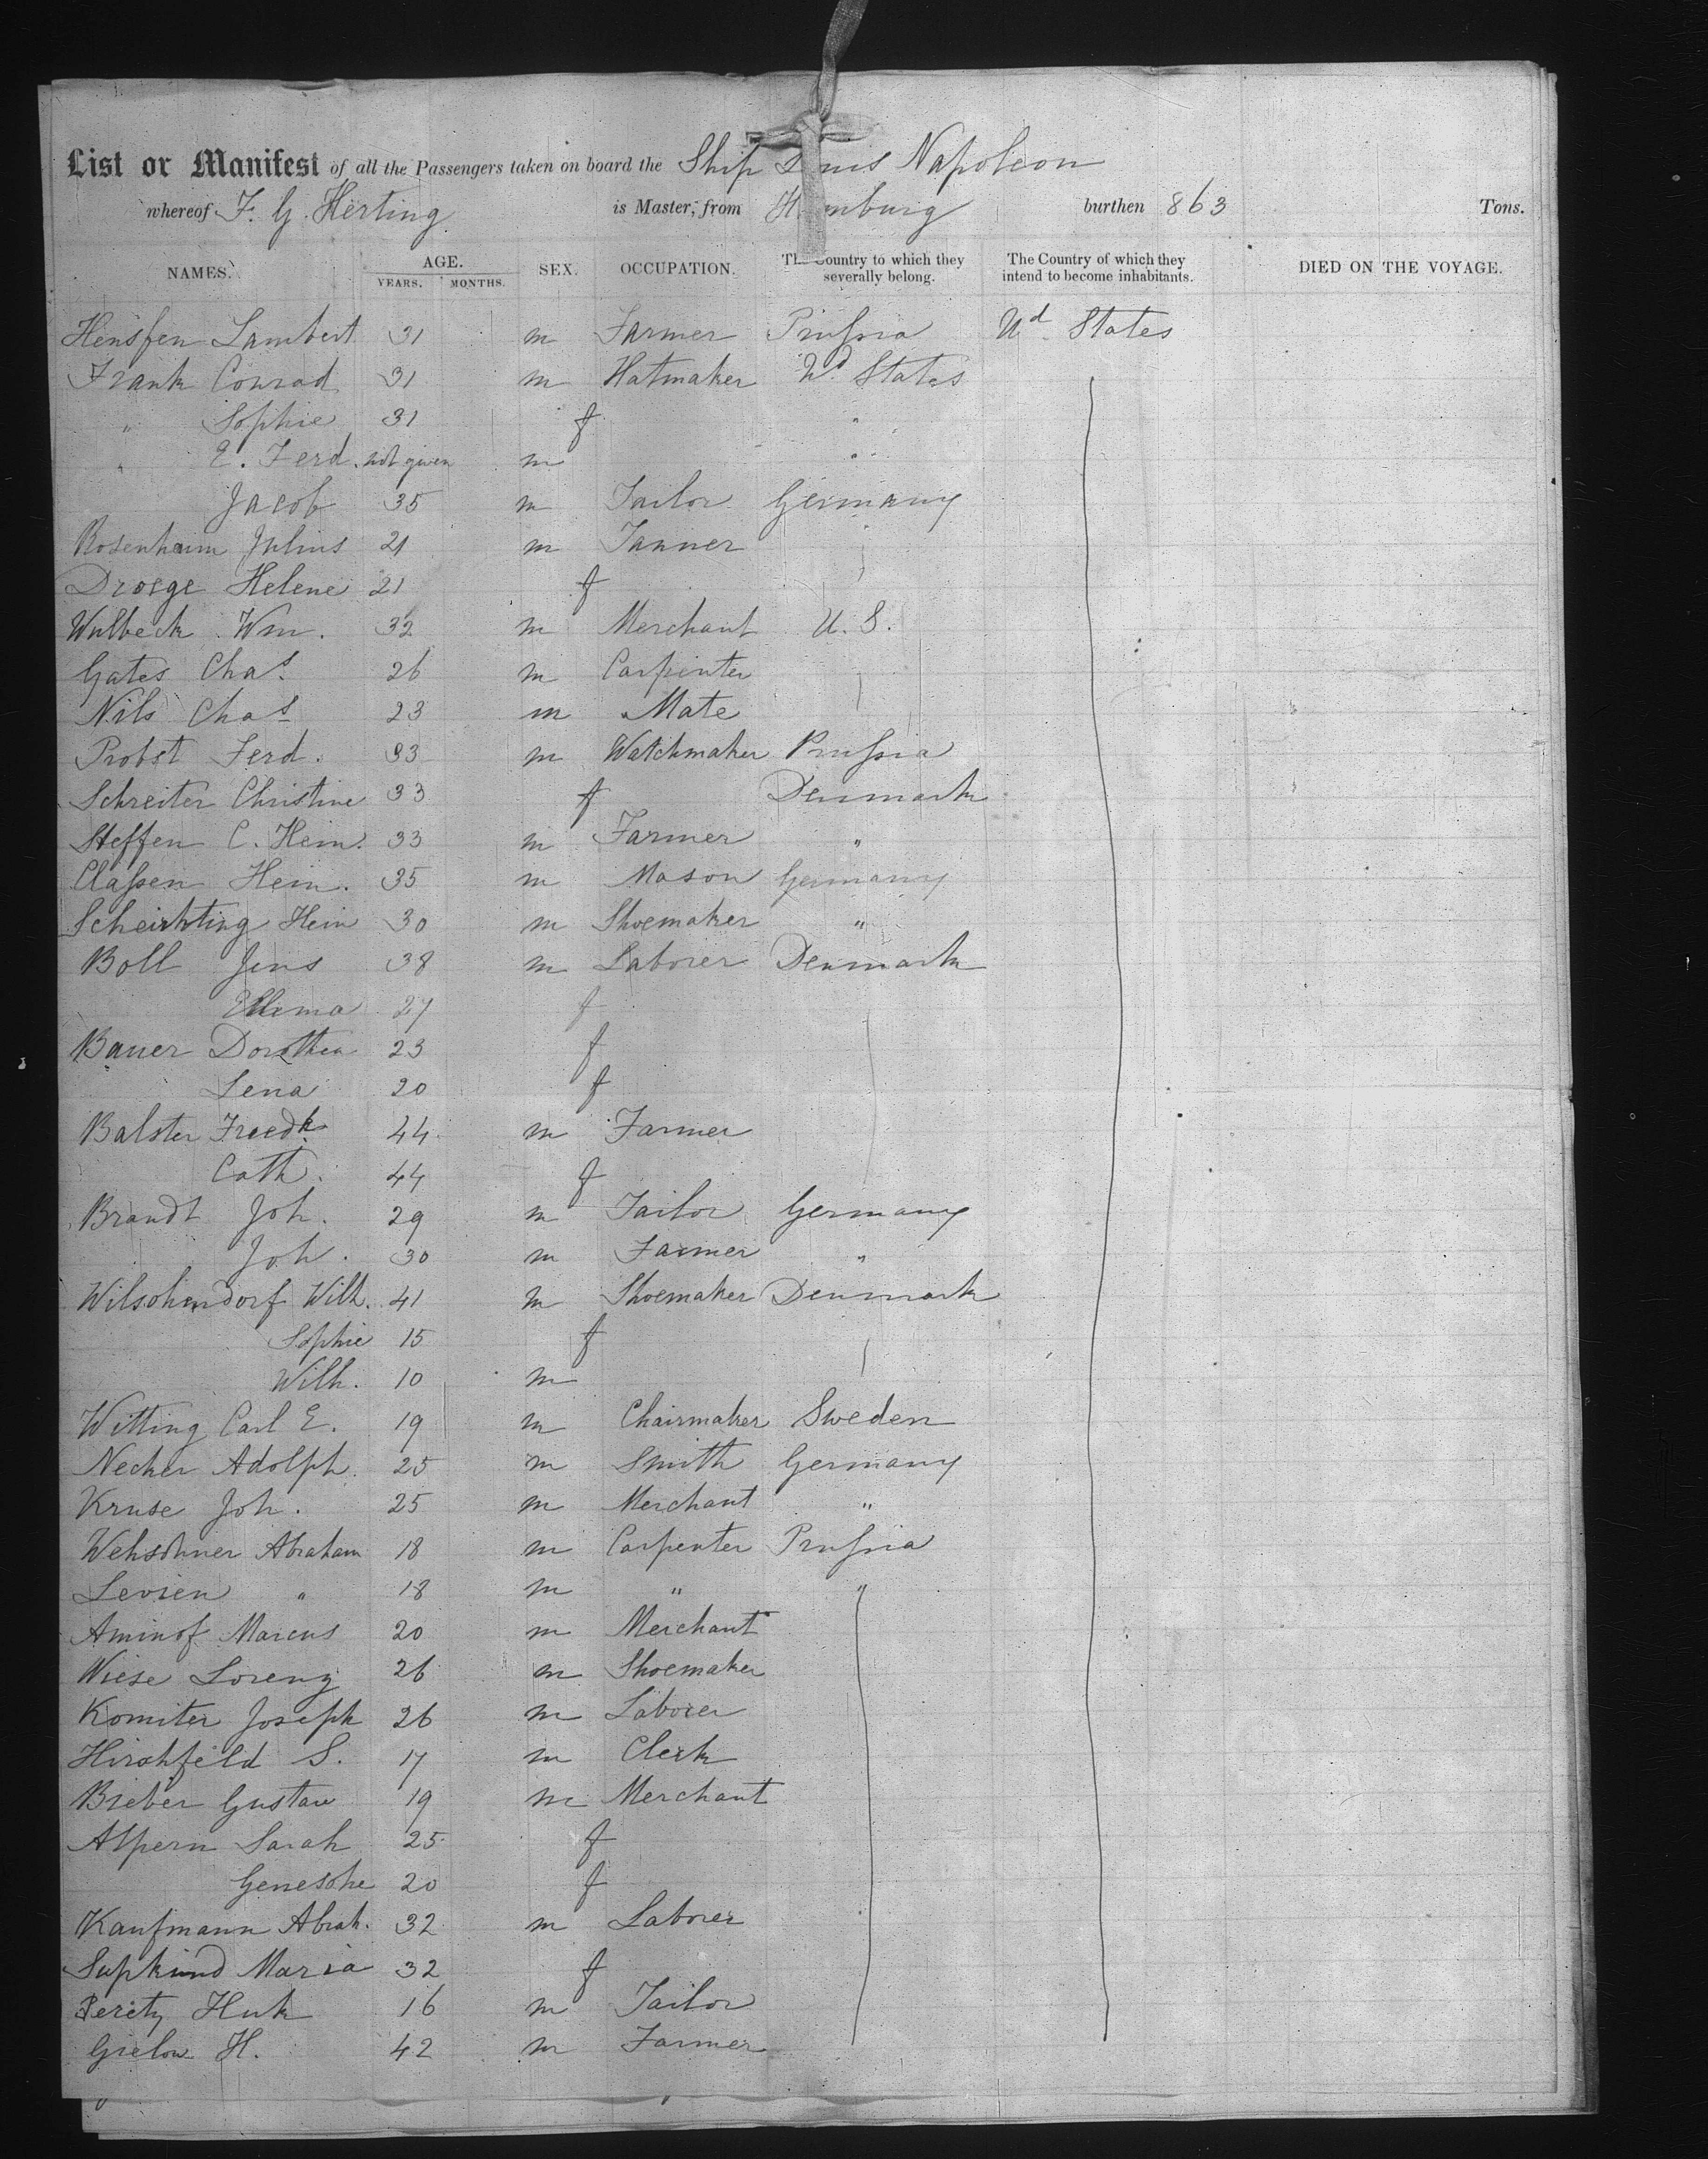 List or Manifest of all the Passengers taken on board the Ship Napoleon
whereof F. G. Herting is Master, from burthen 863 Tons.
NAMES. AGE. YEARS. MONTHS. SEX. OCCUPATION. The Country to which they severally belong. The Country of which they intend to become inhabitants. DIED ON THE VOYAGE.
Lambert 31 m Farmer Prussia Ud States
Frank Conrad 31 m Hatmaker Ud States
" Sophie 31 f "
" E. Ferd. not given m "
Jacob 35 m Tailor Germany
Rosenhaim Julius 21 m Tanner
Droege Helene 21 f
Wulbeck Wm. 32 m Merchant U. S.
Gates Chas. 26 m Carpenter
Nils Chas 23 m Mate
Probst Ferd. 33 m Watchmaker Prussia
Schreiter Christine 33 f Denmark
Steffen C. Hein. 33 m Farmer "
Classen Hein. 35 m Mason Germany
Hein 30 m Shoemaker "
Boll Jens 38 m Laborer Denmark
27 f
Bauer Dorothea 23 f
Lena 20 f
Balster Fredk 44 m Farmer
Cath. 44 f
Brandt Joh. 29 m Tailor Germany
Joh. 30 m Farmer "
Wilh. 41 m Shoemaker Denmark
Sophie 15 f
Wilh. 10 m
Witting Carl E. 19 m Chairmaker Sweden
Necker Adolph. 25 m Smith Germany
Kruse Joh. 25 m Merchant "
Abraham 18 m Carpenter Prussia
Levien " 18 m " "
Aminof Marcus 20 m Merchant
Wiese Lorenz 26 m Shoemaker
Komiter Joseph 26 m Laborer
Hirschfeld S. 17 m Clerk
Bieber Gustav 19 m Merchant
Alpern Sarah 25 f
Genesche 20 f
Kaufmann Abrah. 32 m Laborer
Maria 32 f
16 m Tailor
Gielow H. 42 m Farmer